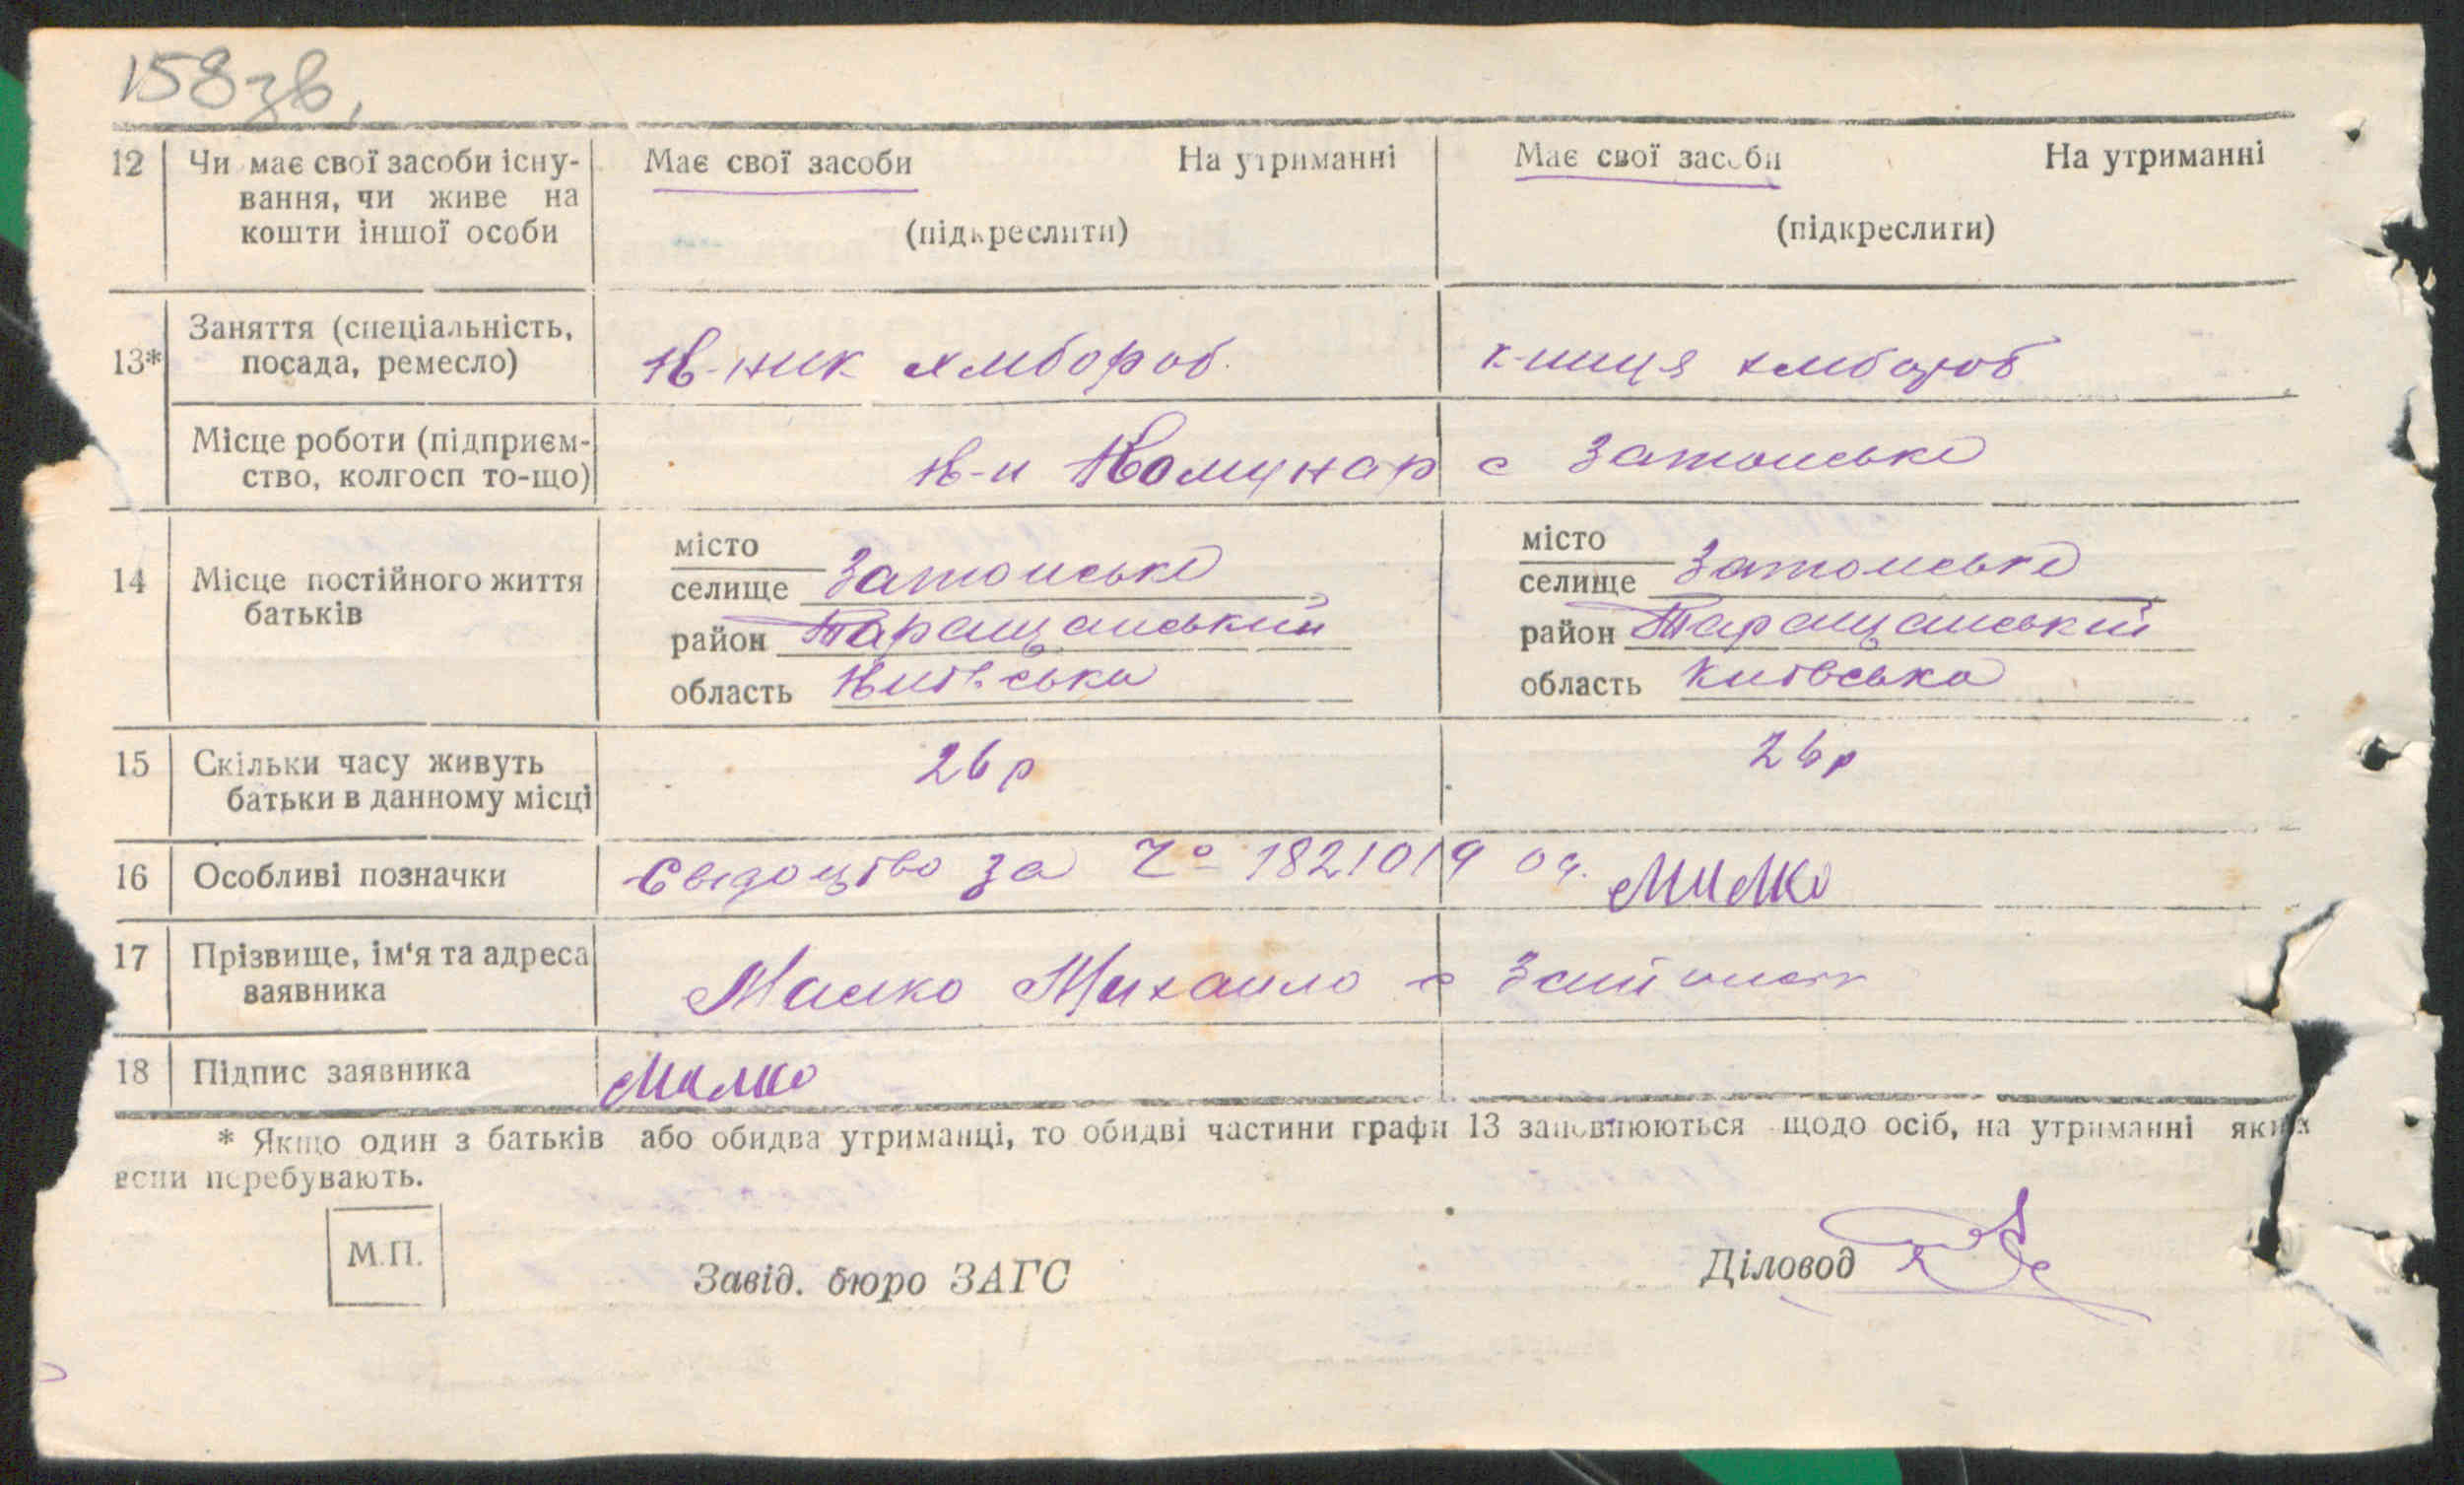 158зв.
12 Чи має свої засоби існу-
вання, чи живе на
кошти іншої особи
Має свої засоби На утриманні
(підкреслити)
Має свої засоби На утриманні
(підкреслити)
13* Заняття (спеціальність,
посада, ремесло)
К-ник хлібороб.
к-ниця хлібороб
Місце роботи (підприєм-
ство, колгосп то-що)
К-п Комунар с
14 Місце постійного життя
батьків
місто
селище
район Таращанський
область Київська
місто
селище
район Таращанський
область Київська
15 Скільки часу живуть
батьки в данному місці
26 р
26 р
16 Особливі позначки
Свідоцтво за № 1821019 од.
17 Прізвище, ім'я та адреса
заявника
Михаило с
18 Підпис заявника
* Якщо один з батьків або обидва утриманці, то обидві частини графи 13 заповнюються щодо осіб, на утриманні яких
вони перебувають.
М.П.
Завід. бюро ЗАГС
Діловод